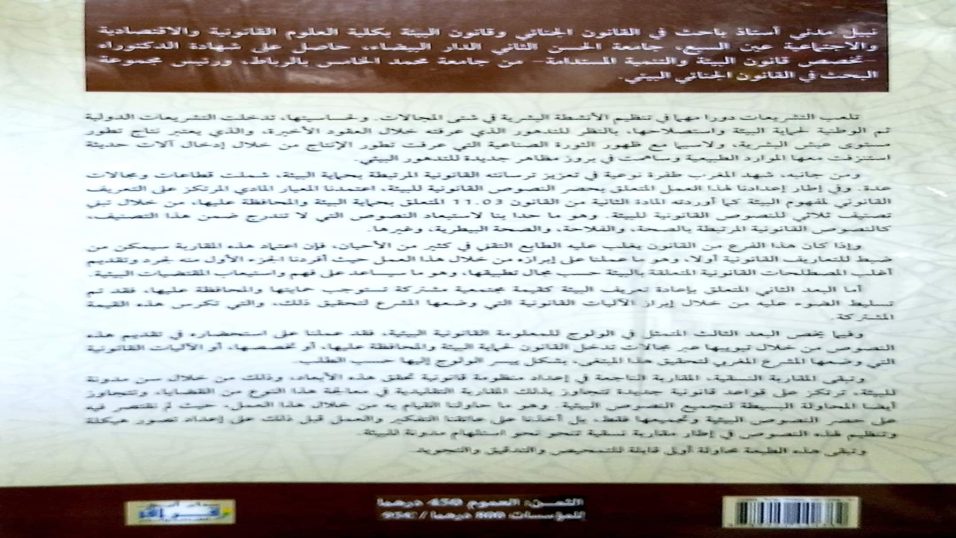 نبيل مدني أستاذ باحث في القانون الجنائي وقانون البيئة بكلية العلوم القانونية والاقتصادية
والاجتماعية عين السبع، جامعة الحسن الثاني الدار البيضاء، حاصل على شهادة الدكتوراه
-تخصص قانون البيئة والتنمية المستدامة- من جامعة محمد الخامس بالرباط، ورئيس مجموعة
البحث في القانون الجنائي البيئي.
تلعب التشريعات دورا مهما في تنظيم الأنشطة البشرية في شتى المجالات. ولحساسيتها، تدخلت التشريعات الدولية
ثم الوطنية لحماية البيئة واستصلاحها، بالنظر للتدهور الذي عرفته خلال العقود الأخيرة، والذي يعتبر نتاج تطور
مستوى عيش البشرية، ولاسيما مع ظهور الثورة الصناعية التي عرفت تطور الإنتاج من خلال إدخال آلات حديثة
استنزفت معها الموارد الطبيعية وساهمت في بروز مظاهر جديدة للتدهور البيئي.
ومن جانبه، شهد المغرب طفرة نوعية في تعزيز ترسانته القانونية المرتبطة بحماية البيئة، شملت قطاعات ومجالات
عدة. وفي إطار إعدادنا لهذا العمل المتعلق بحصر النصوص القانونية للبيئة، اعتمدنا المعيار المادي المرتكز على التعريف
القانوني لمفهوم البيئة كما أوردته المادة الثانية من القانون 11.03 المتعلق بحماية البيئة والمحافظة عليها، من خلال تبني
تصنيف ثلاثي للنصوص القانونية للبيئة. وهو ما حدا بنا لاستبعاد النصوص التي لا تندرج ضمن هذا التصنيف،
كالنصوص القانونية المرتبطة بالصحة، والفلاحة، والصحة البيطرية، وغيرها.
وإذا كان هذا الفرع من القانون يغلب عليه الطابع التقني في كثير من الأحيان، فإن اعتماد هذه المقاربة سيمكن من
ضبط للتعاريف القانونية أولا، وهو ما عملنا على إبرازه من خلال هذا العمل حيث أفردنا الجزء الأول منه لجرد وتقديم
أغلب المصطلحات القانونية المتعلقة بالبيئة حسب مجال تطبيقها، وهو ما سيساعد على فهم واستيعاب المقتضيات البيئية.
أما البعد الثاني المتعلق بإعادة تعريف البيئة كقيمة مجتمعية مشتركة تستوجب حمايتها والمحافظة عليها، فقد تم
تسليط الضوء عليه من خلال إبراز الآليات القانونية التي وضعها المشرع لتحقيق ذلك، والتي تكرس هذه القيمة
المشتركة.
وفيما يخص البعد الثالث المتمثل في الولوج للمعلومة القانونية البيئية، فقد عملنا على استحضاره في تقديم هذه
النصوص من خلال تبويبها عبر مجالات تدخل القانون لحماية البيئة والمحافظة عليها، أو تخصصها، أو الآليات القانونية
التي وضعها المشرع المغربي لتحقيق هذا المبتغى، بشكل ييسر الولوج إليها حسب الطلب.
وتبقى المقاربة النسقية، المقاربة الناجعة في إعداد منظومة قانونية تحقق هذه الأبعاد، وذلك من خلال سن مدونة
للبيئة، ترتكز على قواعد قانونية جديدة تتجاوز بذلك المقاربة التقليدية في معالجة هذا النوع من القضايا، وتتجاوز
أيضا المحاولة البسيطة لتجميع النصوص البيئية. وهو ما حاولنا القيام به من خلال هذا العمل، حيث لم نقتصر فيه
على حصر النصوص البيئية وتجميعها فقط، بل أخذنا على عاتقنا التفكير والعمل قبل ذلك على إعداد تصور هيكلة
وتنظيم لهذه النصوص في إطار مقاربة نسقية تنحو نحو استلهام مدونة للبيئة.
وتبقى هذه الطبعة محاولة أولى قابلة للتمحيص والتدقيق والتجويد.
الثمن: العموم 450 درهما
للمؤسسات 800 درهما / 95€